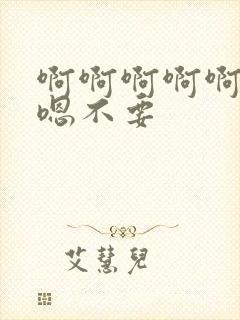 啊啊啊啊啊
嗯不要
艾慧兒